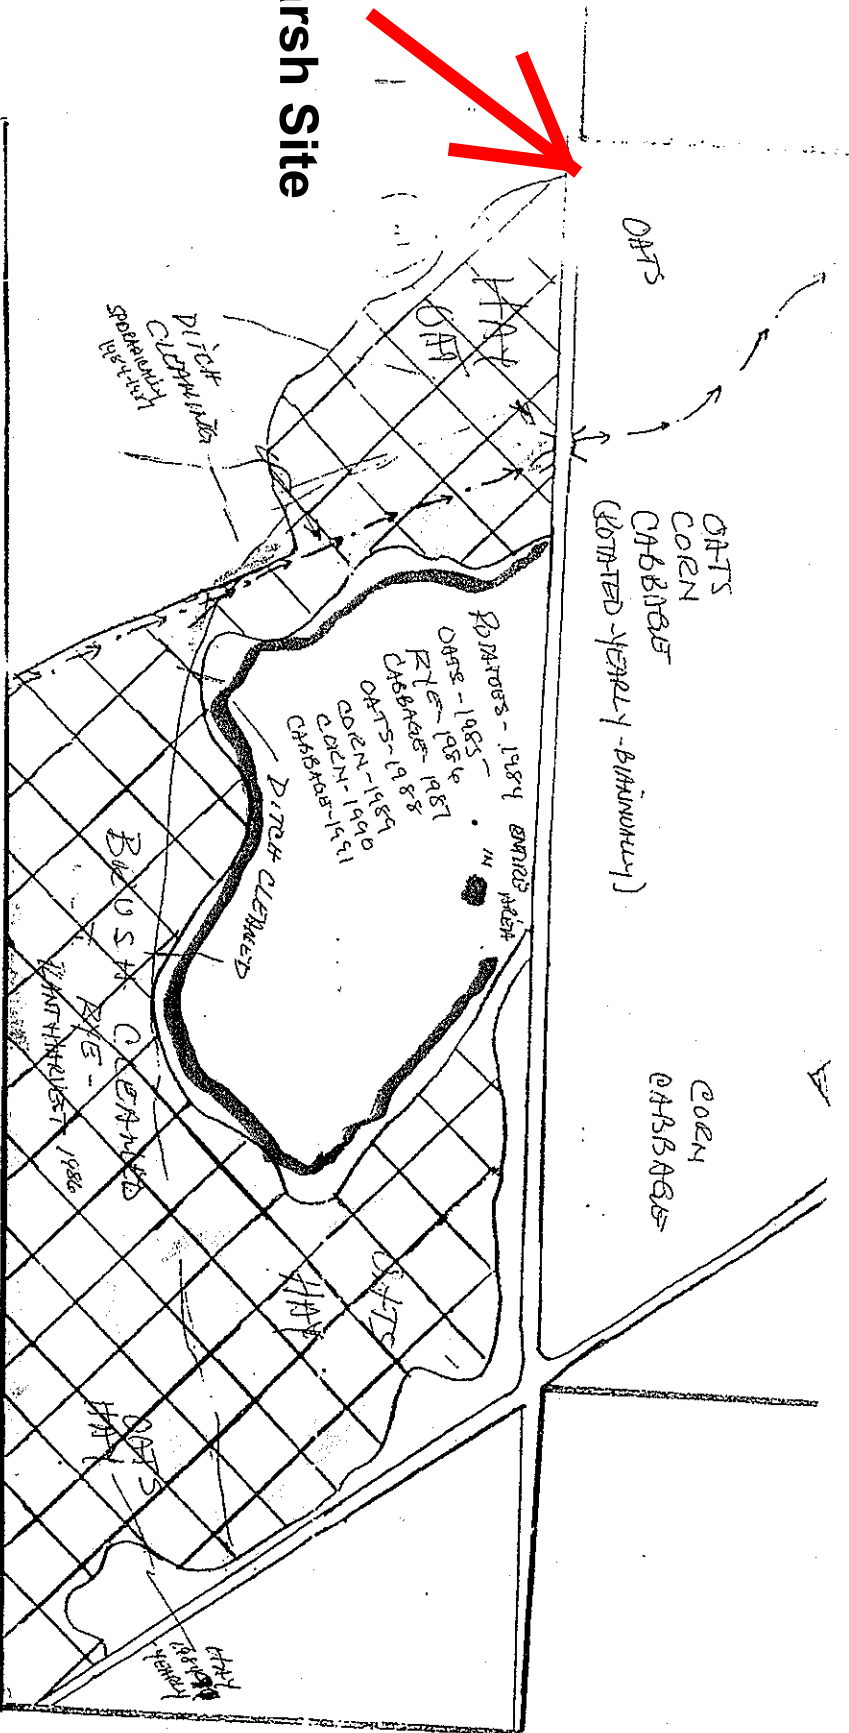 rsh Site
OATS
HAY
OAT
DITCH
CLEANING
SPORADICALLY
OATS
CORN
CABBAGE
(ROTATED-YEARLY-BIANNUALLY)
POTATOES-1984
OATS-1985
RYE-1986
CABBAGE-1987
OATS-1988
CORN-1989
CORN-1990
CABBAGE-1991
ENTIRE
IN AREA
DITCH CLEANED
BRUSH CLEANED
RYE-
1986
CORN
CABBAGE
OATS
HAY
OATS
HAY
HAY
YEARLY